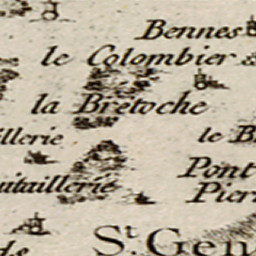 Bennes
le Colombier
la Bretoche
illerie
le B
Pont
utaillerie
Pier
St. Gen
ds